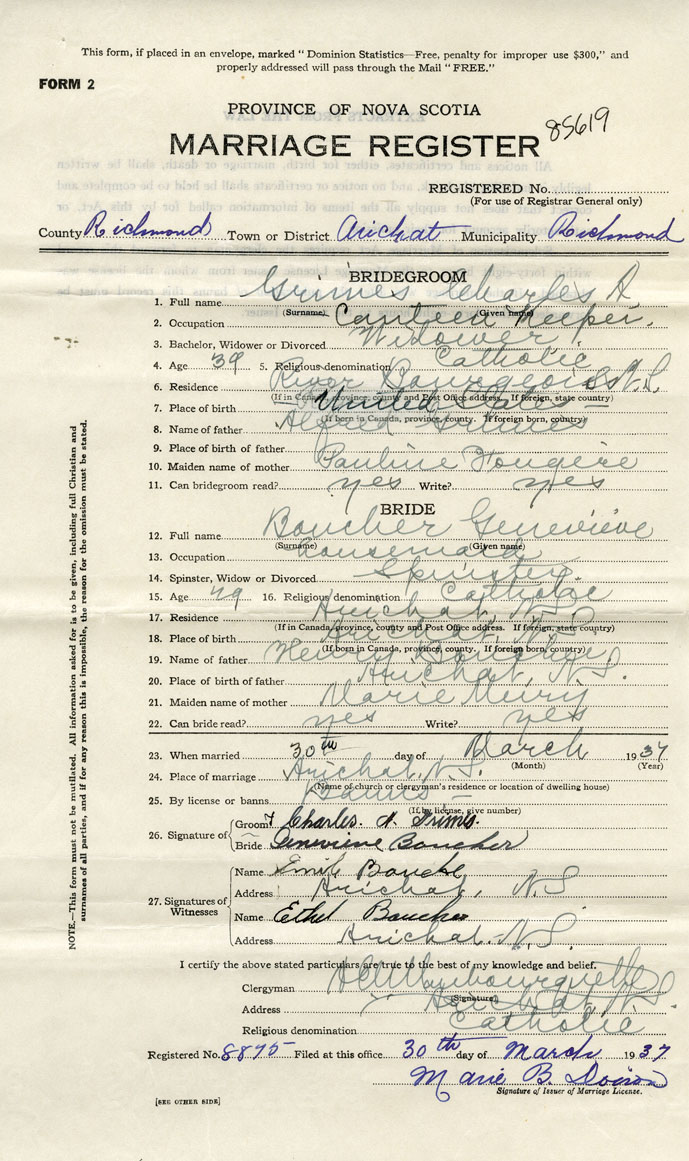 This form, if placed in an envelope, marked "Dominion Statistics—Free, penalty for improper use $300," and
properly addressed will pass through the Mail "FREE."
FORM 2
PROVINCE OF NOVA SCOTIA
85619
MARRIAGE REGISTER
REGISTERED No.
(For use of Registrar General only)
County Richmond Town or District Arichat Municipality Richmond
BRIDEGROOM
1. Full name Grimes Charles A
(Surname) (Given name)
2. Occupation Canteen Keeper.
3. Bachelor, Widower or Divorced Widower
4. Age 39 5. Religious denomination Catholic
6. Residence River Bourgeois N.S.
(If in Canada, province, county and Post Office address. If foreign, state country)
7. Place of birth United States
(If born in Canada, province, county. If foreign born, country)
8. Name of father Alfred Grimes
9. Place of birth of father
10. Maiden name of mother Pauline Fougere
11. Can bridegroom read? yes Write? yes
BRIDE
12. Full name Boucher Genevieve
(Surname) (Given name)
13. Occupation housemaid
14. Spinster, Widow or Divorced Spinster.
15. Age 29 16. Religious denomination Catholic
17. Residence Arichat N.S.
(If in Canada, province, county and Post Office address. If foreign, state country)
18. Place of birth Arichat, N.S.
(If born in Canada, province, county. If foreign born, country)
19. Name of father Henry Boucher
20. Place of birth of father Arichat, N.S.
21. Maiden name of mother Marie
22. Can bride read? yes Write? yes
23. When married 30th day of March 1937
(Month) (Year)
24. Place of marriage Arichat, N.S.
(Name of church or clergyman's residence or location of dwelling house)
25. By license or banns Banns
(If by license, give number)
26. Signature of
Groom Charles A. Grimes.
Bride Genevieve Boucher
27. Signatures of Witnesses
Name Emile Bouché
Address Arichat, N.S
Name Ethel Boucher
Address Arichat. N.S.
I certify the above stated particulars are true to the best of my knowledge and belief.
Clergyman
(Signature)
Address Arichat N.S.
Religious denomination Catholic
Registered No. 8875 Filed at this office 30th day of March 1937
Marie B. Doiron
Signature of Issuer of Marriage License.
[SEE OTHER SIDE]
NOTE.—This form must not be mutilated. All information asked for is to be given, including full Christian and
surnames of all parties, and if for any reason this is impossible, the reason for the omission must be stated.